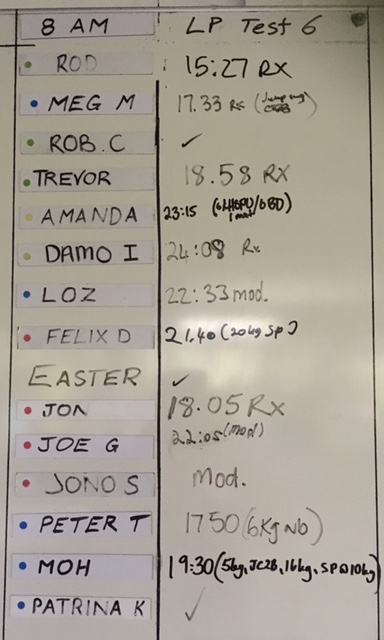 8 AM LP Test 6
ROD 15:27 RX
MEG M 17.33 Rx
ROB.C ✓
TREVOR 18.58 RX
AMANDA 23:15
DAMO I 24:08 Rx
LOZ 22:33 mod.
FELIX D 21.40 (20kg SP)
EASTER ✓
JON 18.05 RX
JOE G 22:05 (mod)
JONO S Mod.
PETER T 1750 (6Kg Nb)
MOH 19:30 (5kg, JC2B, 16kg, SP@10kg)
PATRINA K ✓